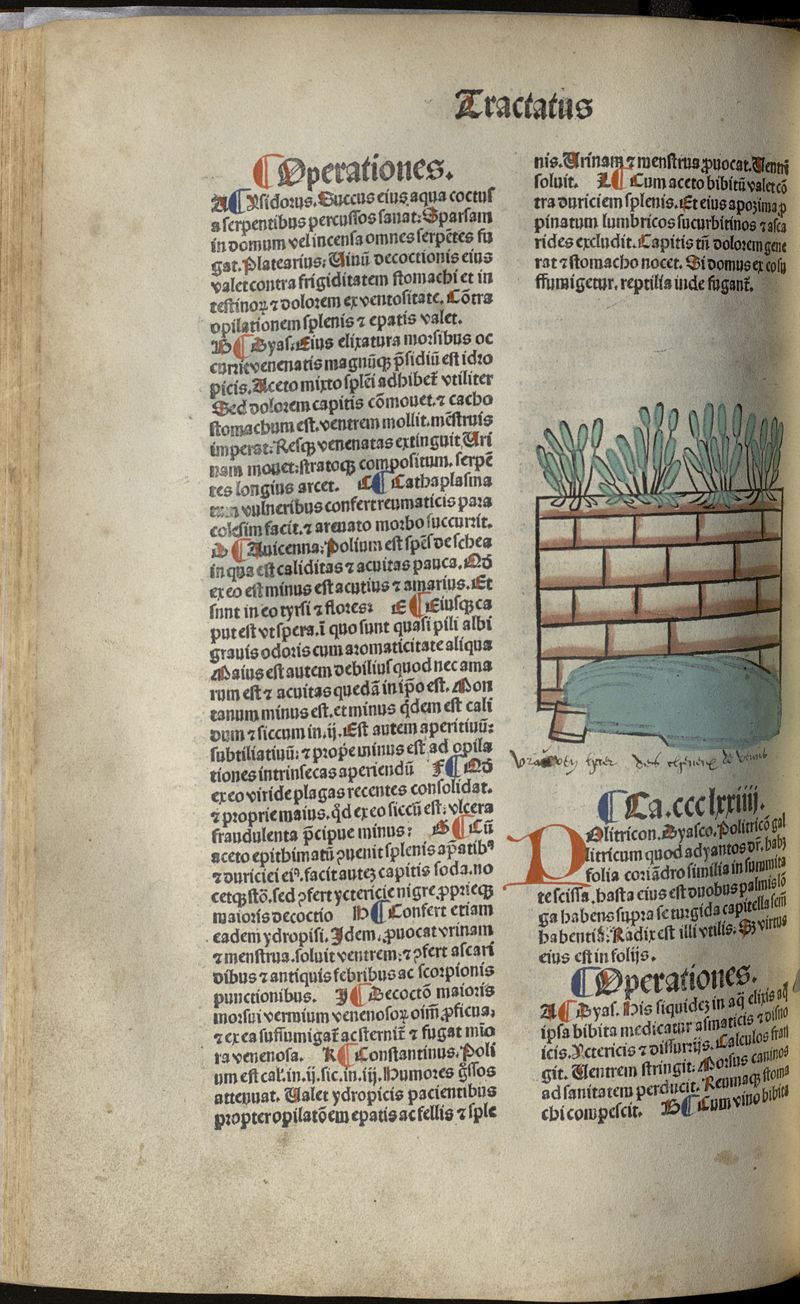 Tractatus
¶Operationes.
A ¶Ysidorus. Succus eius aqua coctus
a serpentibus percussos sanat: Sparsam
in domum vel incensa omnes serpẽtes fu
gat. Platearius: Uinũ decoctionis eius
valet contra frigiditatem stomachi et in
testinoꝝ ⁊ dolorem ex ventositate. Cõtra
opilationem splenis ⁊ epatis valet.
B ¶Dyas. Eius elixatura morsibus oc
currit venenatis magnũqꝫ p̃sidiũ est idro
picis. Aceto mixto splẽi adhibet̃ vtiliter
Sed dolorem capitis cõmouet. ⁊ cacho
stomachum est. ventrem mollit. mẽstruis
imperat: Resqꝫ venenatas extinguit Uri
nam mouet: stratoqꝫ compositum. serpẽ
tes longius arcet. C ¶Cathaplasma
vulneribus confert reumaticis para
colesim facit. ⁊ arenato morbo succurrit.
D ¶Auicenna. Polium est spẽs de schea
in qua est caliditas ⁊ acuitas pauca. Mõ
ex eo est minus est acutius ⁊ amarius. Et
sunt in eo tyrsi ⁊ flores: E ¶Eiusqꝫ ca
put est vt spera. ĩ quo sunt quasi pili albi
grauis odoris cum aromaticitate aliqua
Maius est autem debilius quod nec ama
rum est ⁊ acuitas quedã in ip̃o est. Mon
tanum minus est. et minus q̃dem est cali
dum ⁊ siccum in. ij. Est autem aperitiuũ:
subtiliatiuũ: ⁊ prope minus est ad opila
tiones intrinsecas aperiendũ F ¶Mõ
ex eo viride plagas recentes consolidat.
⁊ proprie maius. q̃d ex eo siccũ est: vlcera
fraudulenta p̃cipue minus: G ¶Cũ
aceto epithimatũ ꝯuenit splenis ap̃atibꝰ
⁊ duriciei eiꝰ. facit auteꝫ capitis soda. no
cetqꝫ stõ. sed ꝯfert yctericie nigre. ꝓprieqꝫ
maioris decoctio H ¶Confert etiam
eadem ydropisi. Idem. ꝓuocat vrinam
⁊ menstrua. soluit ventrem: ⁊ ꝯfert ascari
dibus ⁊ antiquis febribus ac scorpionis
punctionibus. I ¶Decoctõ maioris
morsui vermium venenosoꝝ oim̃ ꝓficua:
⁊ ex ea suffumigat̃ ac sternit̃ ⁊ fugat mũo
ra venenosa. K ¶Constantinus. Poli
um est cal̃. in. ij. sic. in. iij. Humores g̃ssos
attenuat. Ualet ydropicis pacientibus
propter opilatõem epatis ac fellis ⁊ sple
nis. Urinam ⁊ menstrua ꝓuocat. Uentrẽ
soluit. L ¶Cum aceto bibitũ valet cõ
tra duriciem splenis. Et eius apozima ꝓ
pinatum lumbricos cucurbitinos ⁊ asca
rides excludit. Capitis tñ dolorem gene
rat ⁊ stomacho nocet. Si domus ex eo su
ffumigetur. reptilia inde fugant̃.
¶Ca. ccclxxiiij.
Politricon. Dyasco. Politricõ gal
litricum quod adyantos dr̃. habꝫ
folia coriãdro similia in summita
te scissa. hasta eius est duobus palmis lõ
ga habens supra se turgida capitella sem̃
habentia. Radix est illi vtilis. Sꝫ virtus
eius est in folijs.
¶Operationes.
A ¶Dyas. His siquideꝫ in aq̃ elixis aq̃
ipsa bibita medicatur asmaticis ⁊ disno
icis. Yctericis ⁊ dissurijs. Calculos frãi
git. Uentrem stringit. Morsus caninos
ad sanitatem perducit. Reumaqꝫ stoma
chi compescit. B ¶Cum vino bibita